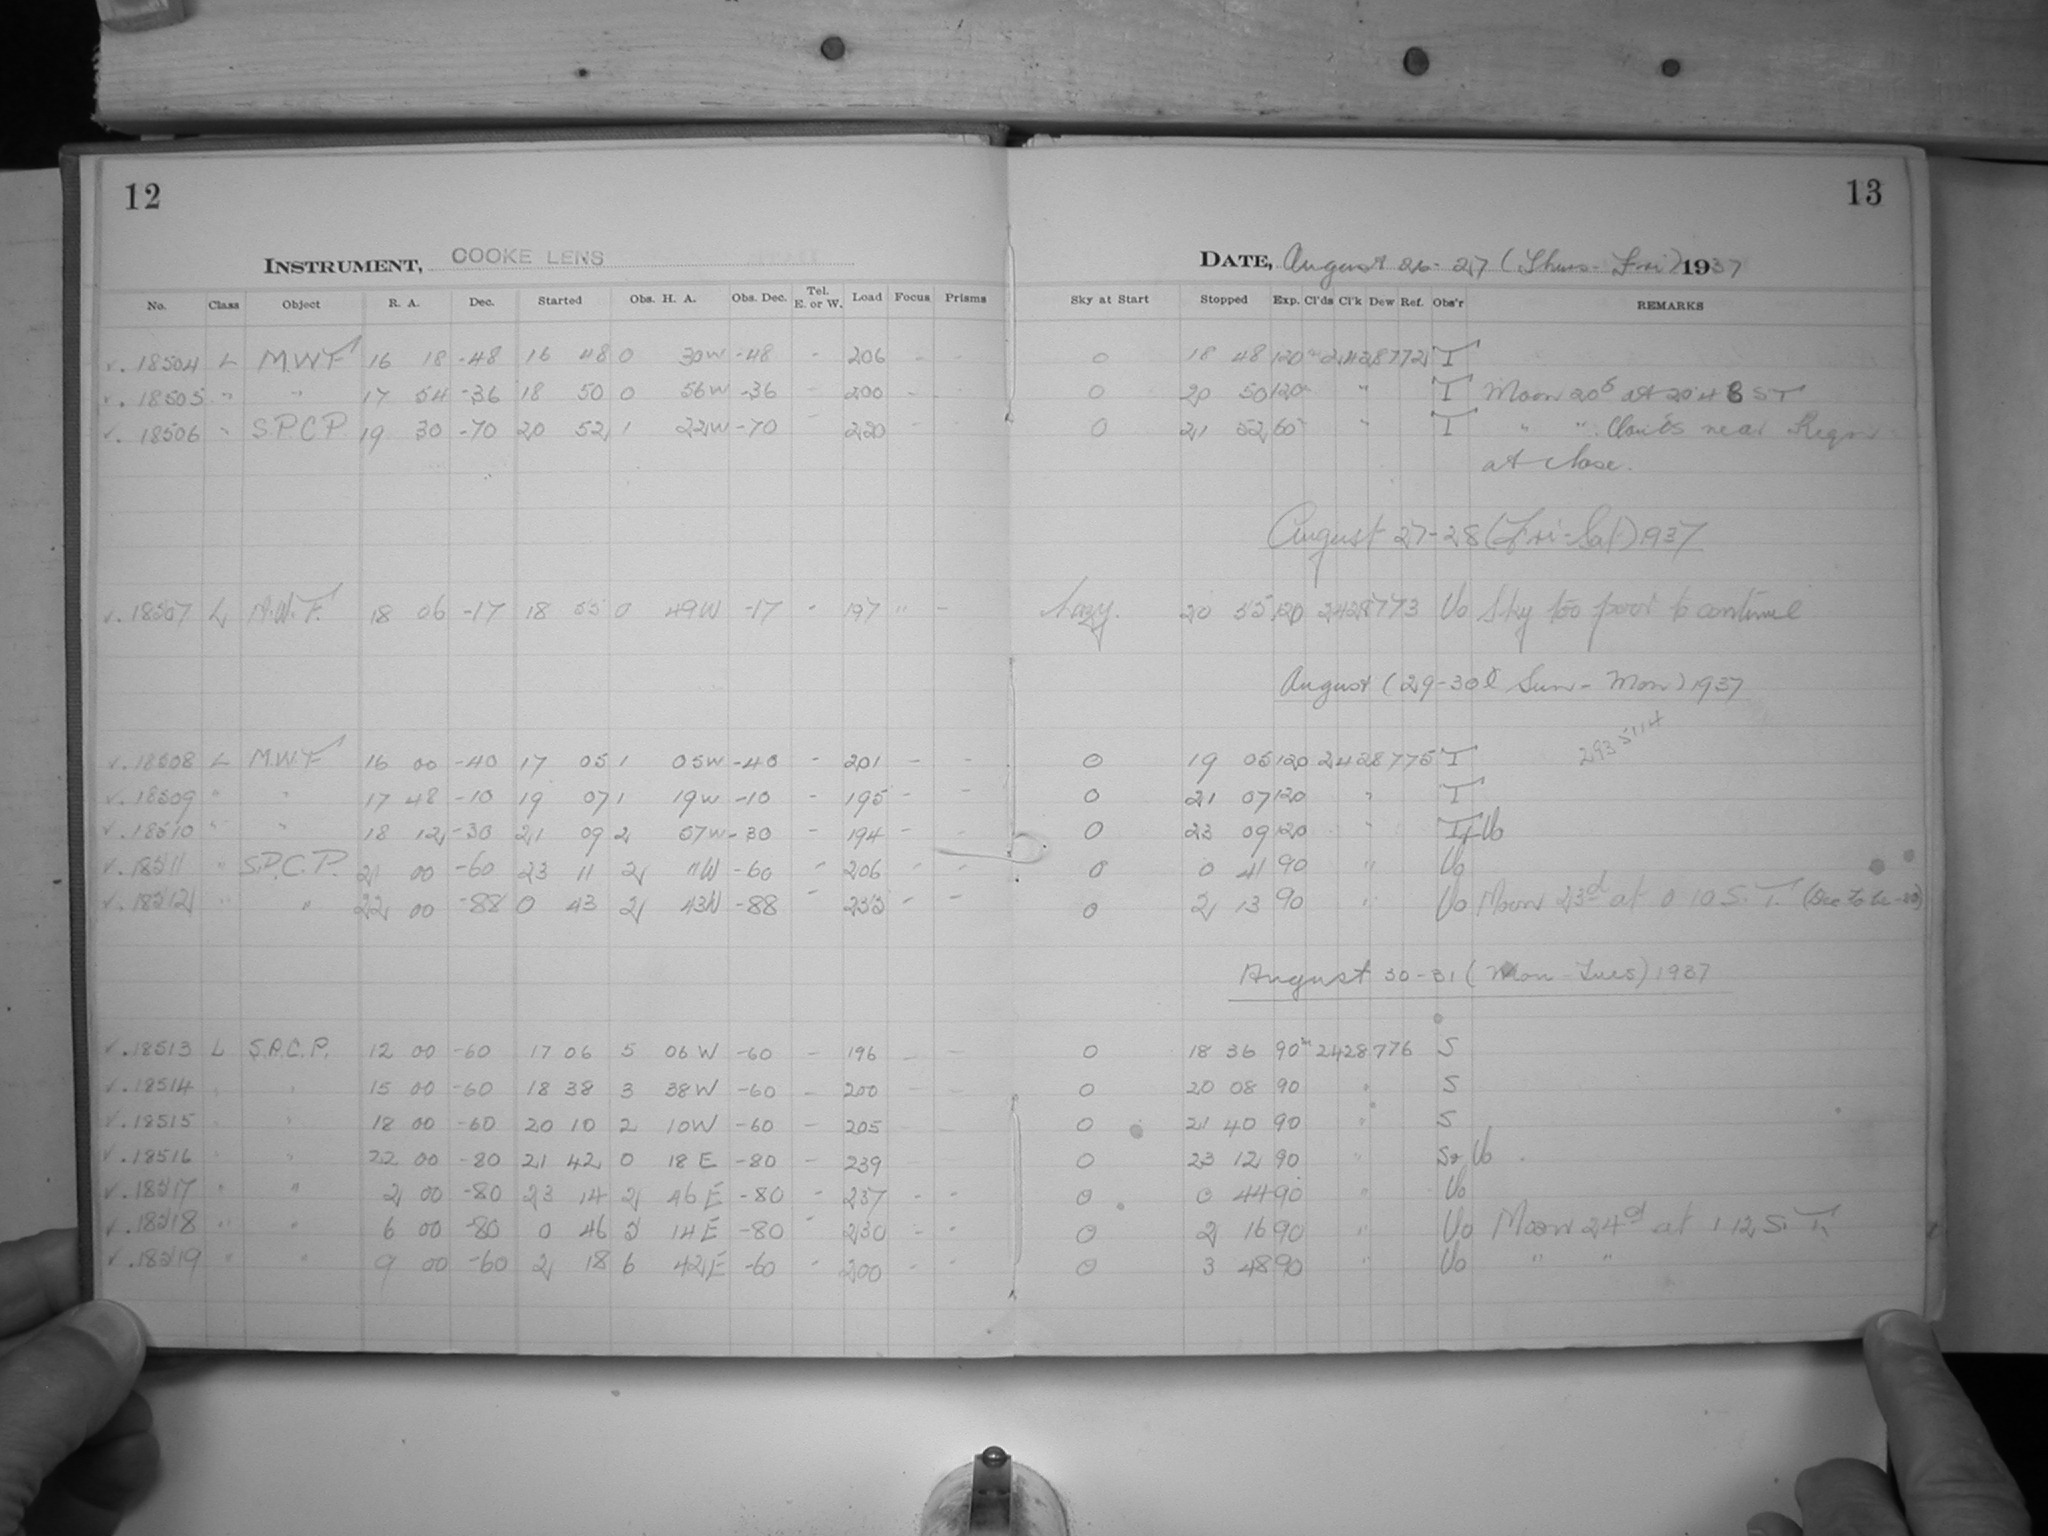 12
INSTRUMENT, COOKE LENS
No. Class Object R. A. Dec. Started Obs. H. A. Obs. Dec. Tel. E. or W. Load Focus Prisms
✓. 18504 L M.W.F 16 18 -48 16 48 0 30W -48 - 206 - -
✓. 18505 " " 17 54 -36 18 50 0 56W -36 - 200 - -
✓. 18506 " S.P.C.P 19 30 -70 20 52 1 22W -70 220 - -
✓. 18507 L M.W.F. 18 06 -17 18 55 0 49W -17 " 197 " -
✓. 18508 L M.W.F 16 00 -40 17 05 1 05W -40 - 201 - -
✓. 18509 " " 17 48 -10 19 07 1 19W -10 - 195 - -
✓. 18510 " " 18 12 -30 21 09 2 57W -30 - 194 - -
✓. 18511 " S.P.C.P. 21 00 -60 23 11 2 11W -60 " 206 - -
✓. 18512 " " 22 00 -88 0 43 2 43W -88 - 233 - -
✓. 18513 L S.P.C.P. 12 00 -60 17 06 5 06W -60 - 196 - -
✓. 18514 " " 15 00 -60 18 38 3 38W -60 - 200 - -
✓. 18515 " " 18 00 -60 20 10 2 10W -60 - 205 - -
✓. 18516 " " 22 00 -80 21 42 0 18E -80 - 239
✓. 18517 " " 2 00 -80 23 14 2 46E -80 " 237 - -
✓. 18518 " " 6 00 -80 0 46 5 14E -80 " 230 - -
✓. 18519 " " 9 00 -60 2 18 6 42E -60 " 200 - -
13
DATE, August 26-27 (Thurs-Fri) 1937
Sky at Start Stopped Exp. Cl'ds Cl'k Dew Ref. Obs'r REMARKS
0 18 48 120m 2428772 T
0 20 50 120 " T Moon 20d at 20 48 ST
0 21 52 60 " T " " Clouds near Region
at close.
August 27-28 (Fri-Sat) 1937
hazy. 20 55 120 2428773 Vo Sky too poor to continue
August (29-30 Sun-Mon) 1937
2935114
0 19 05 120 2428775 T
0 21 07 120 " T
0 23 09 120 " T+Vo
0 0 41 90 " Vo
0 2 13 90 " Vo Moon 23d at 0 10 S.T.
August 30-31 (Mon-Tues) 1937
0 18 36 90m 2428776 S
0 20 08 90 " S
0 21 40 90 " S
0 23 12 90 " S+Vo
0 0 44 90 " Vo
0 2 16 90 " Vo Moon 24d at 1 12 S.T.
0 3 48 90 " Vo " "